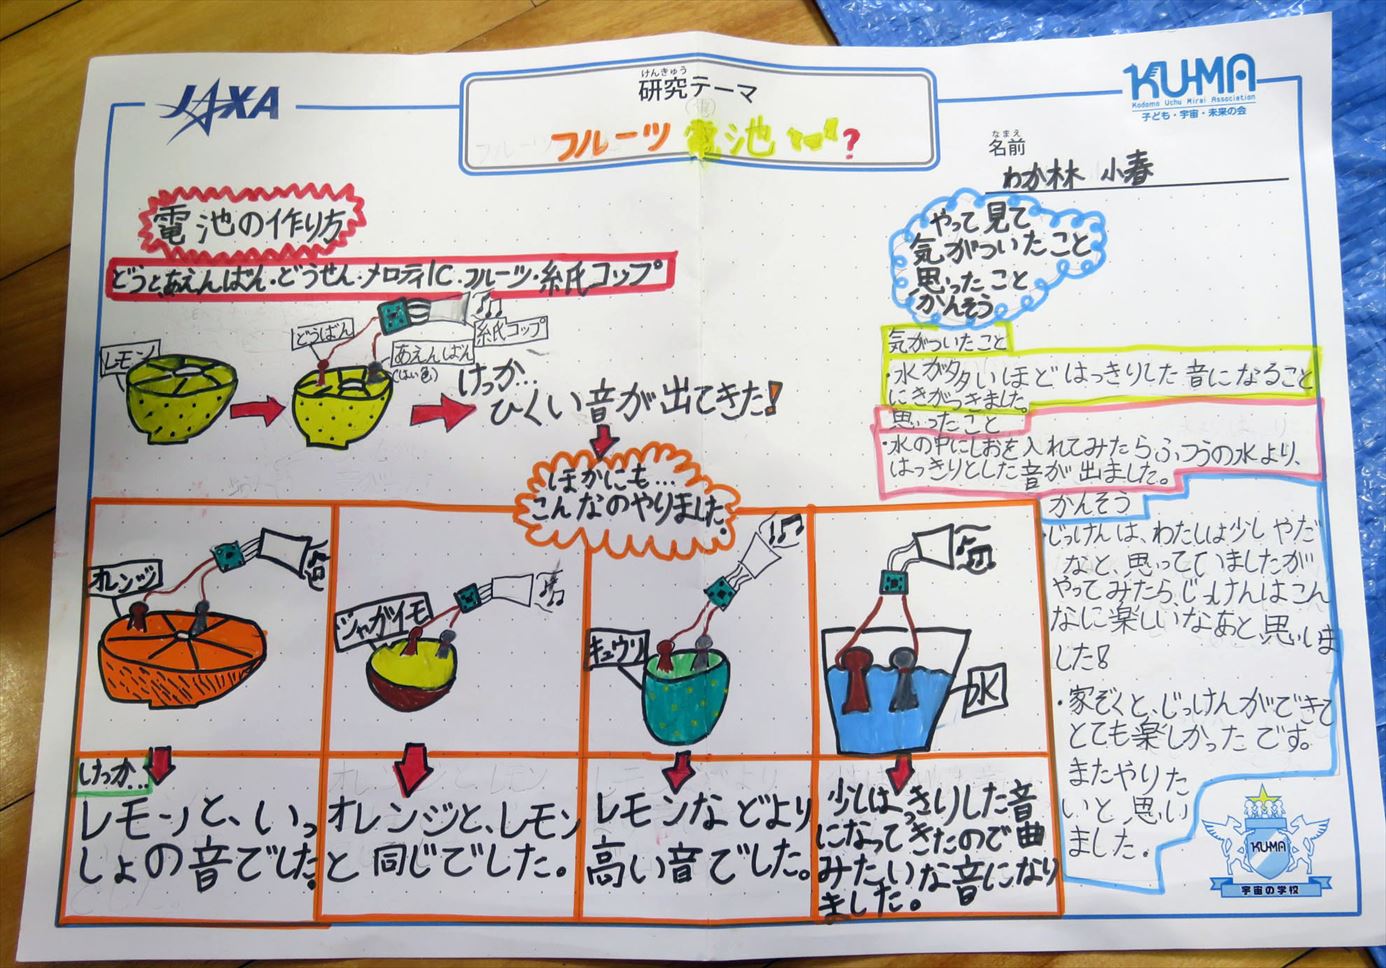 JAXA
けんきゅう
研究テーマ
フルーツ電池
?
KU-MA
Kodomo Uchu Mirai Association
子ども・宇宙・未来の会
なまえ
名前
わか林 小春
電池の作り方
どうと、あえんばん・どうせん・メロディIC・フルーツ・紙コップ
レモン
どうばん
あえんばん
(はい色)
紙コップ
けっか…
ひくい音が出てきた!
ほかにも…
こんなのやりました。
オレンジ
ジャガイモ
キュウリ
水
けっか…
レモンと、いっ
しょの音でした。
オレンジと、レモン
と同じでした。
レモンなどより
高い音でした。
少しはっきりした音
になってきたので曲
みたいな音になり
ました。
やって見て
気がついたこと
思ったこと
かんそう
気がついたこと
・水が多いほどはっきりした音になること
にきがつきました。
思ったこと
・水の中にしおを入れてみたらふつうの水より、
はっきりとした音が出ました。
かんそう
・じっけんは、わたしは少しやだ
なと、思っていましたが
やってみたら、じっけんはこん
なに楽しいなあと、思いま
した!
・家ぞくと、じっけんができて
とても楽しかったです。
またやりた
いと、思い
ました。
KU-MA
宇宙の学校